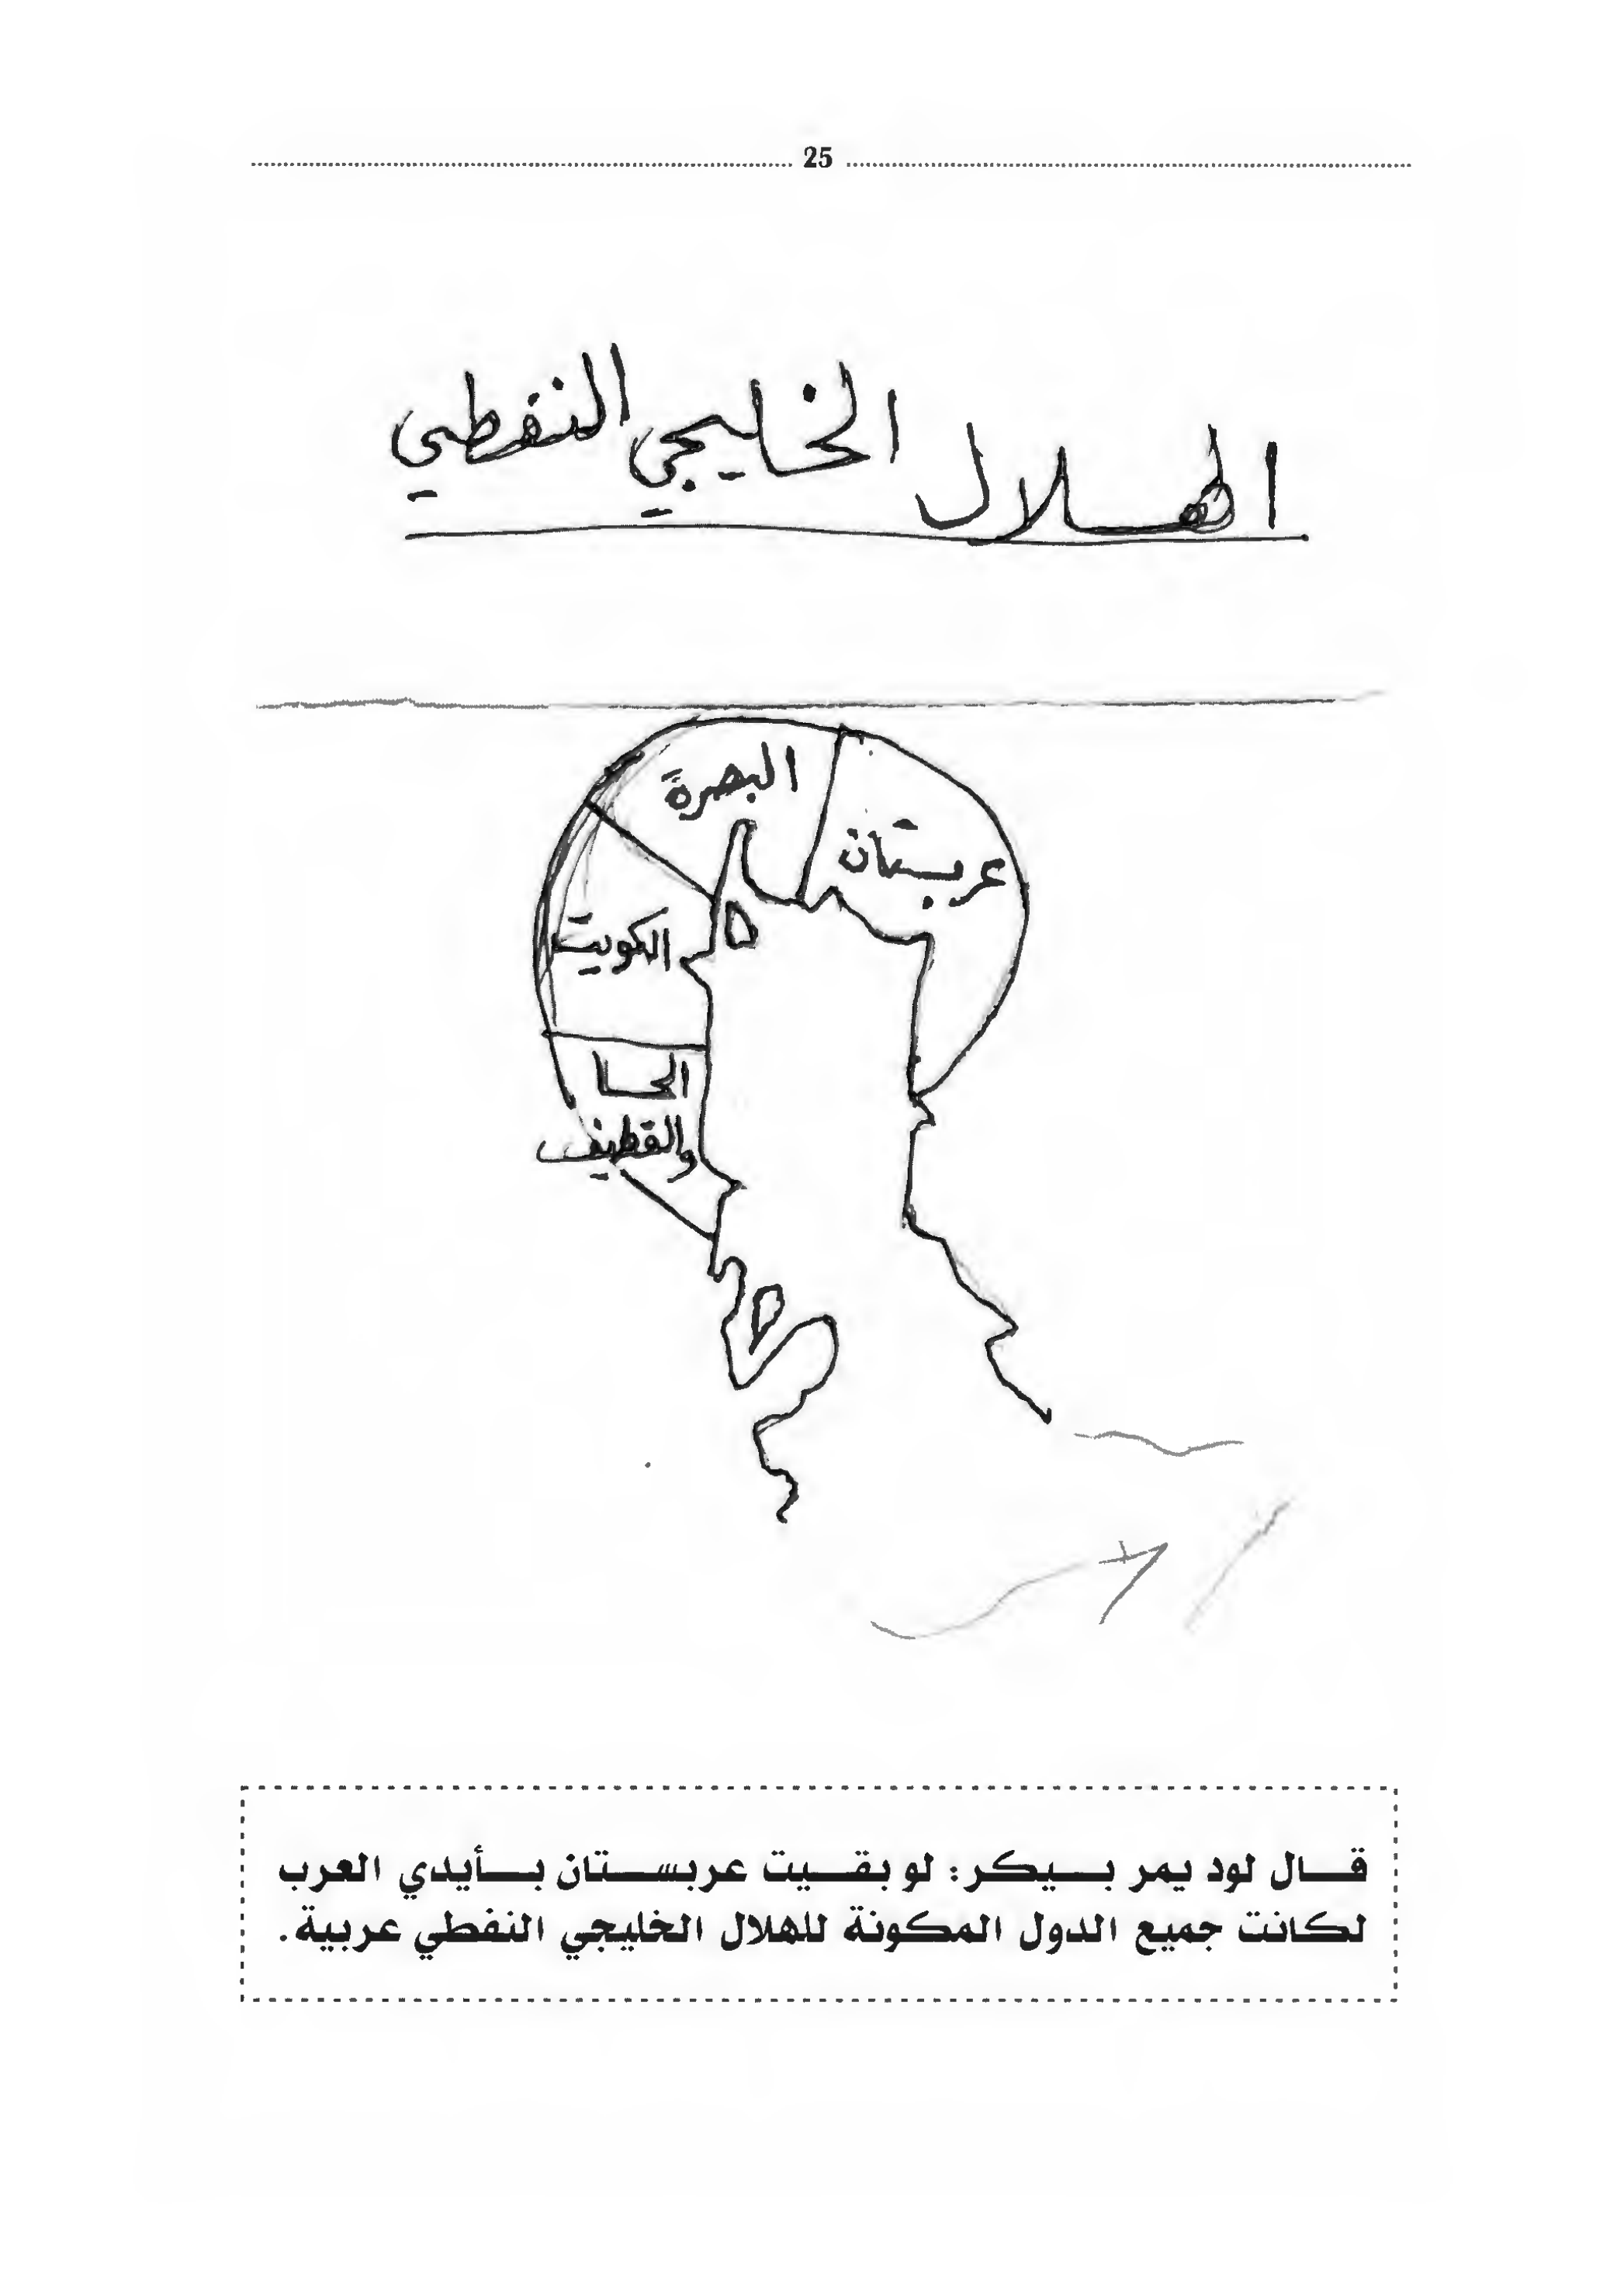 25
الهلال الخليجي النفطي
البصرة
عربستان
الكويت
الحسا
والقطيف
قال لود يمر بيكر: لو بقيت عربستان بأيدي العرب
لكانت جميع الدول المكونة للهلال الخليجي النفطي عربية.